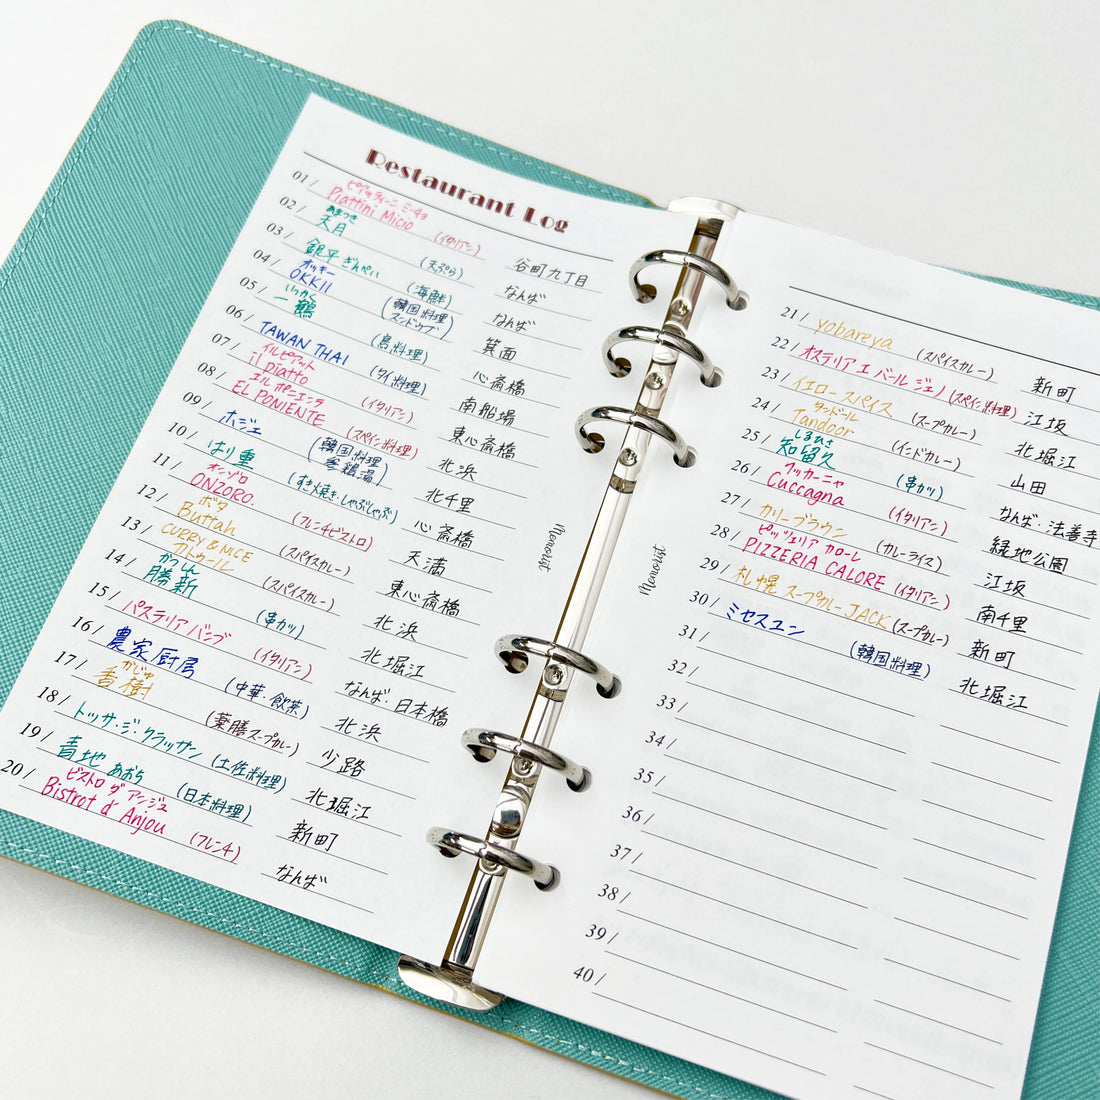 Restaurant Log
01/ ピアッティーニ ミーチョ
Piattini Micio (イタリアン) 谷町九丁目
02/ あまつき
天月 (天ぷら) なんば
03/ 銀平 ぎんぺい (海鮮) なんば
04/ オッキー
OKKII (韓国料理 スンドゥブ) 箕面
05/ いっかく
一鶴 (鳥料理) 心斎橋
06/ TAWAN THAI (タイ料理) 南船場
07/ イルピアット
il Piatto (イタリアン) 東心斎橋
08/ エル ポニエンテ
EL PONIENTE (スペイン料理) 北浜
09/ ホジェ (韓国料理 参鶏湯) 北千里
10/ はり重 (すき焼き・しゃぶしゃぶ) 心斎橋
11/ オンゾロ
ONZORO. (フレンチビストロ) 天満
12/ ボタ
Buttah (スパイスカレー) 東心斎橋
13/ CURRY & NICE
(スパイスカレー) 北浜
14/ かつしん
勝新 (串カツ) 北堀江
15/ パステリアバンブ (イタリアン) なんば・日本橋
16/ 農家厨房 (中華・飲茶) 北浜
17/ かじゅ
香樹 (薬膳スープカレー) 少路
18/ トッサ・ジ・クラッサン (土佐料理) 北堀江
19/ 青地 あおち (日本料理) 新町
20/ ビストロ ダ アンジュ
Bistrot d' Anjou (フレンチ) なんば
Memorist
Memorist
21/ yobareya (スパイスカレー) 新町
22/ オステリア エ バール ジェノ (スペイン料理) 江坂
23/ イエロースパイス (スープカレー) 北堀江
24/ タンドール
Tandoor (インドカレー) 山田
25/ しるひさ
知留久 (串カツ) なんば・法善寺
26/ クッカーニャ
Cuccagna (イタリアン) 緑地公園
27/ カリーブラウン (カレーライス) 江坂
28/ ピッツェリア カローレ
PIZZERIA CALORE (イタリアン) 南千里
29/ 札幌 スープカレー JACK (スープカレー) 新町
30/ ミセスユン (韓国料理) 北堀江
31/
32/
33/
34/
35/
36/
37/
38/
39/
40/